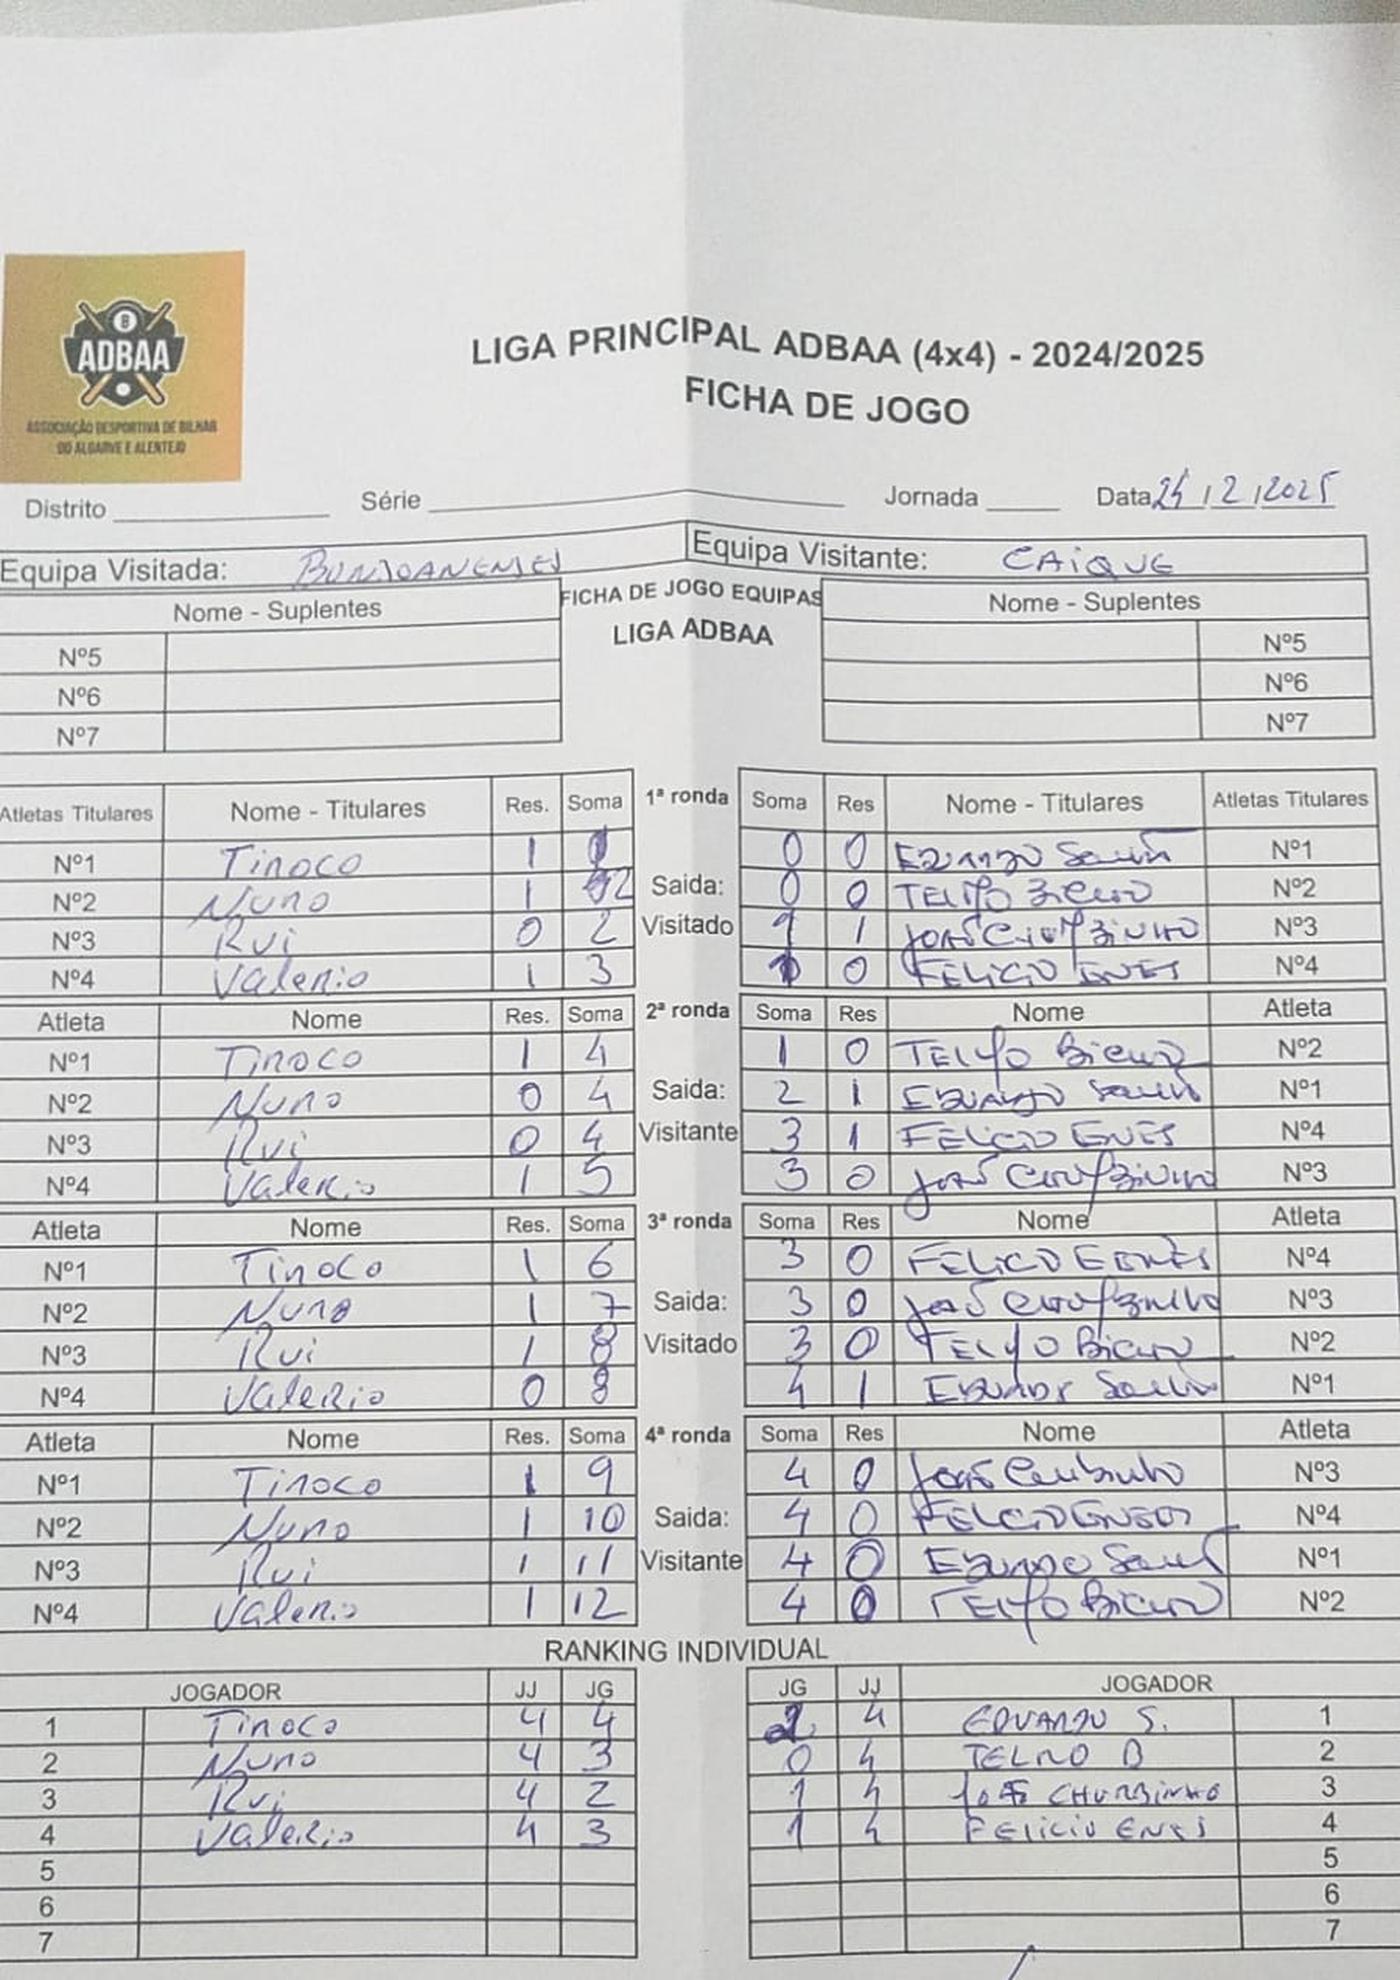 8
ADBAA
ASSOCIAÇÃO DESPORTIVA DE BILHAR
DO ALGARVE E ALENTEJO
LIGA PRINCIPAL ADBAA (4x4) - 2024/2025
FICHA DE JOGO
Distrito Série Jornada Data / 2 / 2025
Equipa Visitada: Equipa Visitante: CAIQUE
Nome - Suplentes FICHA DE JOGO EQUIPAS Nome - Suplentes
LIGA ADBAA
Nº5 Nº5
Nº6 Nº6
Nº7 Nº7
Atletas Titulares Nome - Titulares Res. Soma 1ª ronda Soma Res Nome - Titulares Atletas Titulares
Nº1 Tinoco 1 0 0 Nº1
Nº2 Nuno 1 2 Saida: 0 0 Nº2
Nº3 Rui 0 2 Visitado 1 1 João Nº3
Nº4 Valerio 1 3 1 0 FELICIO ENES Nº4
Atleta Nome Res. Soma 2ª ronda Soma Res Nome Atleta
Nº1 Tinoco 1 4 1 0 TELMO Nº2
Nº2 Nuno 0 4 Saida: 2 1 Nº1
Nº3 Rui 0 4 Visitante 3 1 FELICIO ENES Nº4
Nº4 Valerio 1 5 3 0 João Nº3
Atleta Nome Res. Soma 3ª ronda Soma Res Nome Atleta
Nº1 Tinoco 1 6 3 0 FELICIO Nº4
Nº2 Nuno 1 7 Saida: 3 0 João Nº3
Nº3 Rui 1 8 Visitado 3 0 TELMO Nº2
Nº4 Valerio 0 8 4 1 Nº1
Atleta Nome Res. Soma 4ª ronda Soma Res Nome Atleta
Nº1 Tinoco 1 9 4 0 João Nº3
Nº2 Nuno 1 10 Saida: 4 0 Nº4
Nº3 Rui 1 11 Visitante 4 0 Nº1
Nº4 Valerio 1 12 4 0 TELMO Nº2
RANKING INDIVIDUAL
JOGADOR JJ JG JG JJ JOGADOR
1 Tinoco 4 4 2 4 EDUARDO S. 1
2 Nuno 4 3 0 4 TELMO B 2
3 Rui 4 2 1 4 João 3
4 Valerio 4 3 1 4 FELICIO ENES 4
5 5
6 6
7 7